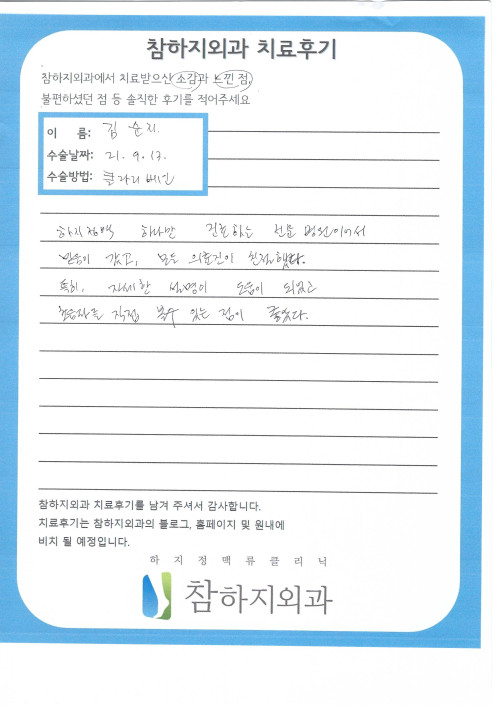 참하지외과 치료후기
참하지외과에서 치료받으신 소감과 느낀 점,
불편하셨던 점 등 솔직한 후기를 적어주세요
이 름: 김순지
수술날짜: 21. 9. 13.
수술방법: 클라리베인
하지정맥 하나만 진료하는 전문 병원이어서
믿음이 갔고, 모든 의료진이 친절했다.
특히, 자세한 설명이 도움이 되었고
초음파를 직접 볼수 있는 점이 좋았다.
참하지외과 치료후기를 남겨 주셔서 감사합니다.
치료후기는 참하지외과의 블로그, 홈페이지 및 원내에
비치 될 예정입니다.
하지정맥류클리닉
참하지외과